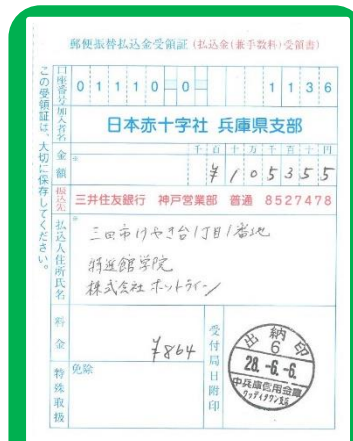 郵便振替払込金受領証(払込金(兼手数料)受領書)
この受領証は、大切に保存してください。
口座番号 01110-0-1136
加入者名 日本赤十字社 兵庫県支部
千百十万千百十円
金額 ※ ¥105355
振込先 三井住友銀行 神戸営業部 普通 8527478
払込人住所氏名
※
三田市けやき台1丁目1番地
特進館学院
株式会社ホットライン
料金 ¥864
特殊取扱 免除
受付局日附印
出納印
6
28.-6.-6.
中兵庫信用金庫
ウッディタウン支店